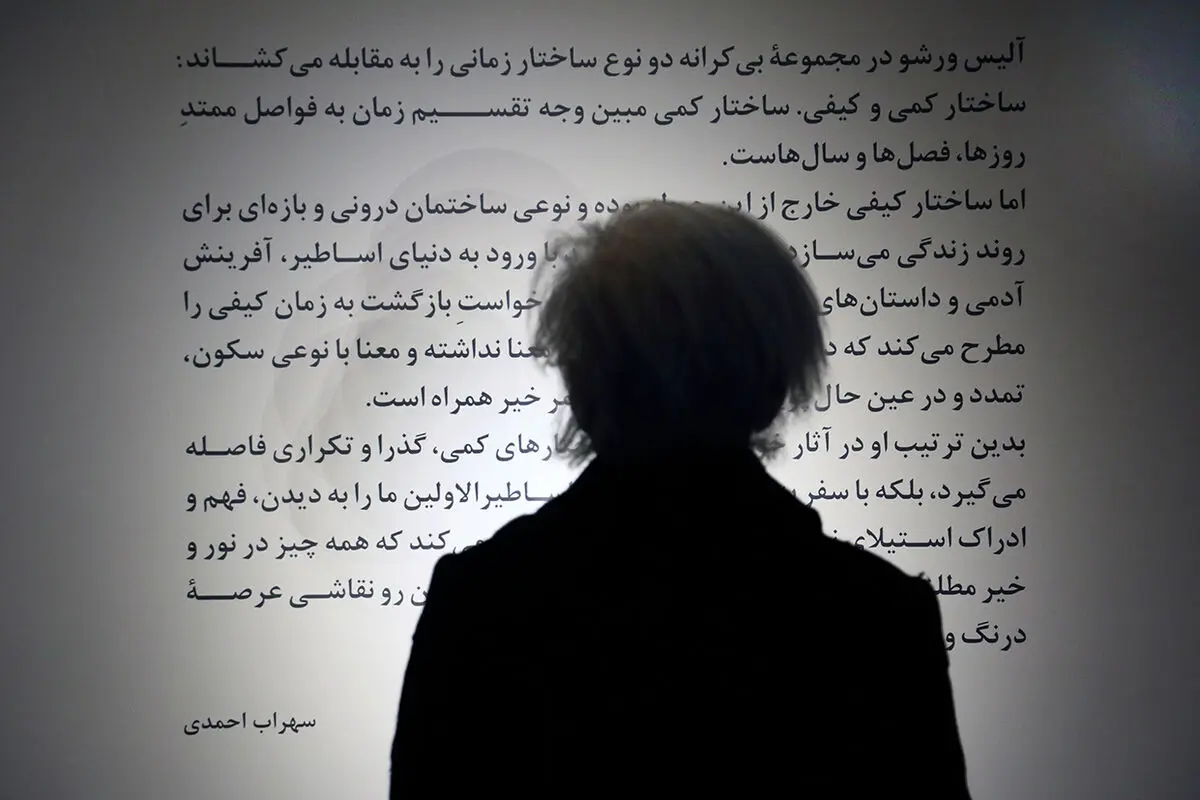 آلیس ورشو در مجموعهٔ بی‌کرانه دو نوع ساختار زمانی را به مقابله می‌کشاند:
ساختار کمی و کیفی. ساختار کمی مبین وجه تقسیم زمان به فواصل ممتدِ
روزها، فصل‌ها و سال‌هاست.
اما ساختار کیفی خارج از این بوده و نوعی ساختمان درونی و بازه‌ای برای
روند زندگی می‌سازد با ورود به دنیای اساطیر، آفرینش
آدمی و داستان‌های خواستِ بازگشت به زمان کیفی را
مطرح می‌کند که معنا نداشته و معنا با نوعی سکون،
تمدد و در عین حال خیر همراه است.
بدین ترتیب او در آثار کمی، گذرا و تکراری فاصله
می‌گیرد، بلکه با سفر اساطیرالاولین ما را به دیدن، فهم و
ادراک استیلای می‌کند که همه چیز در نور و
خیر رو نقاشی عرصهٔ
درنگ و
سهراب احمدی